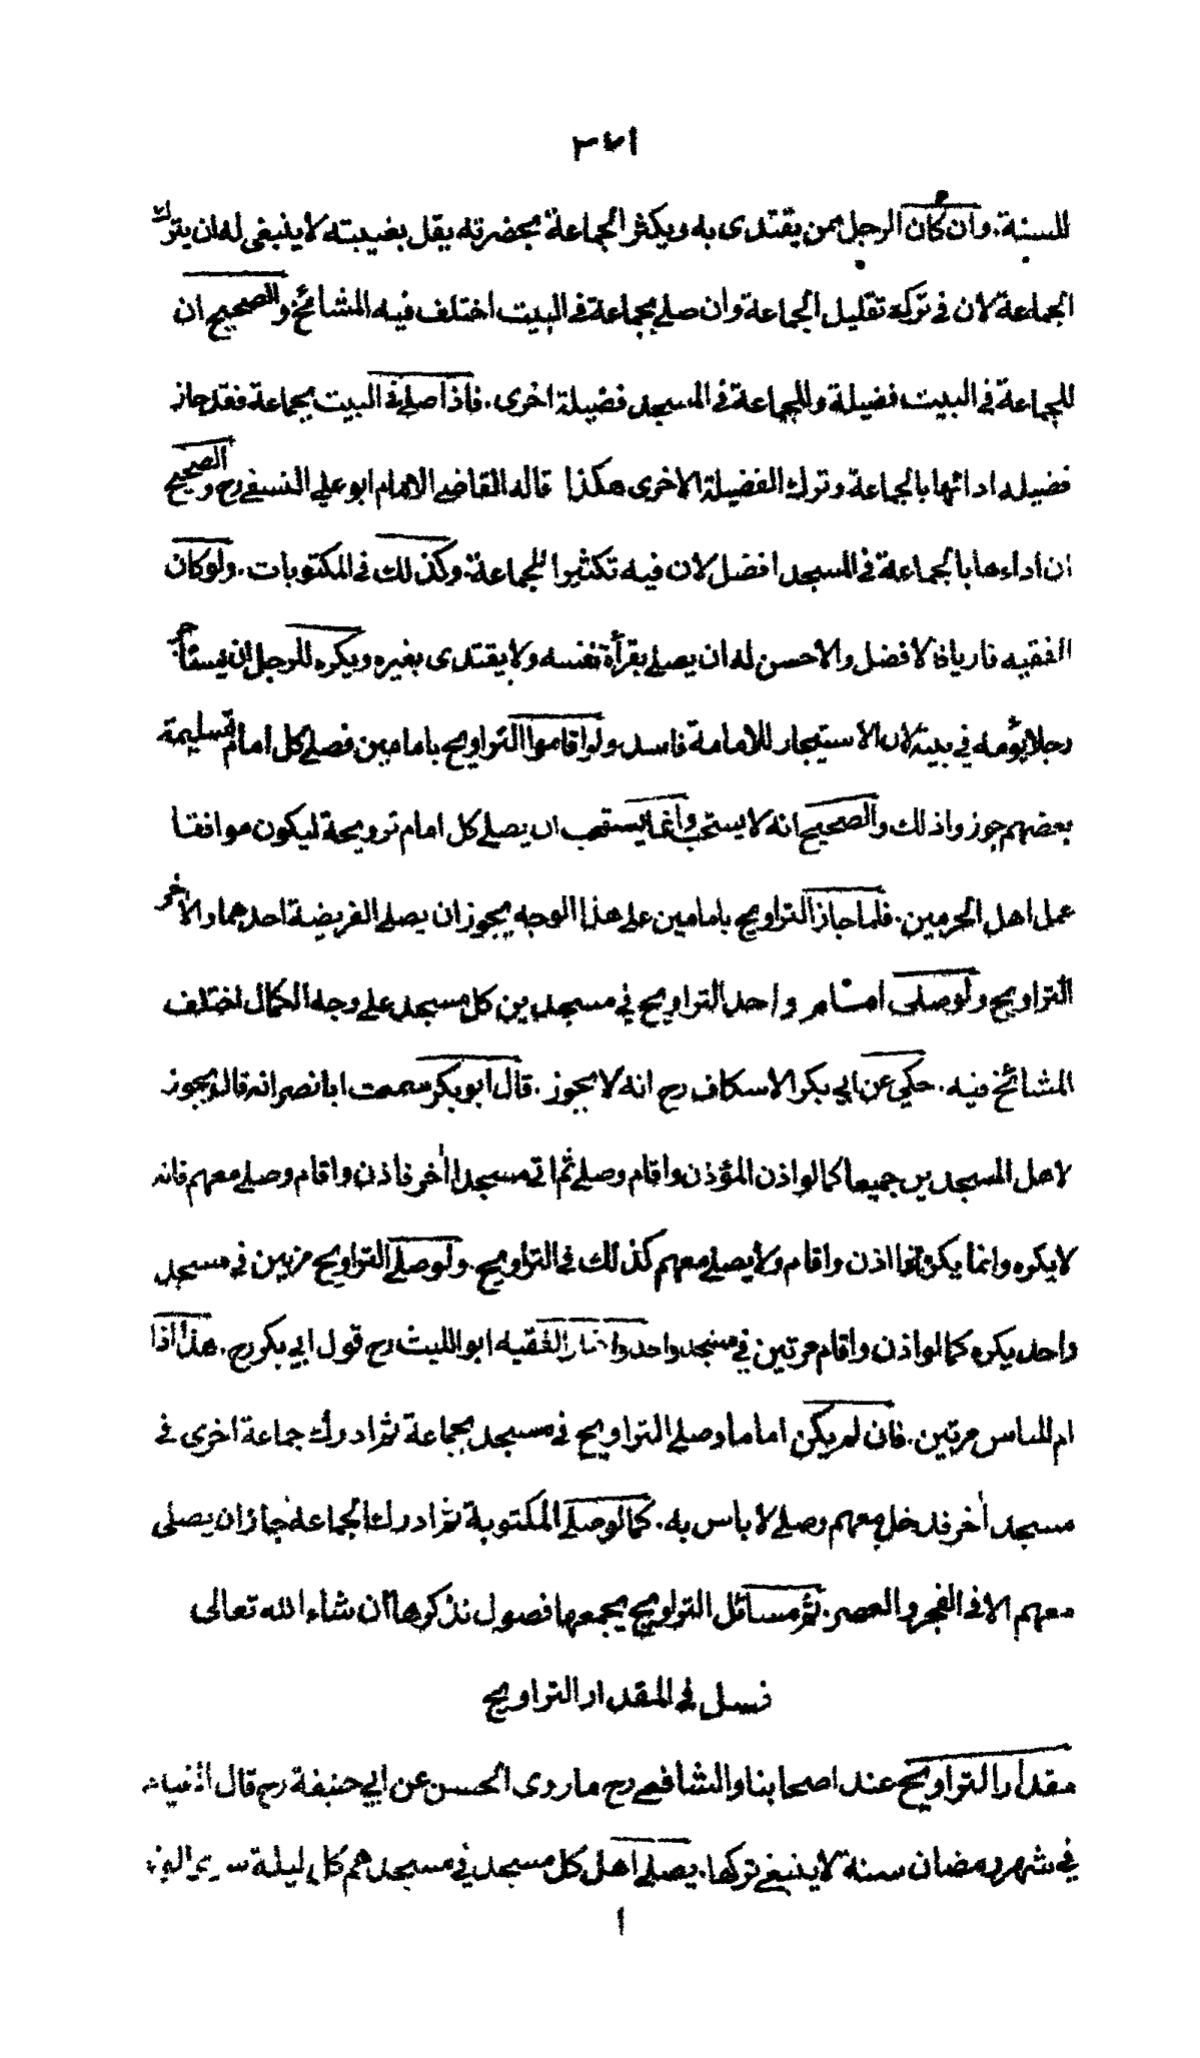 ٣٧١
للسنة. وان كان الرجل ممن يقتدى به ويكثر الجماعة بحضرته يقل بغيبته لا ينبغى له ان يترك
الجماعة لان فى تركه تقليل الجماعة وان صلى بجماعة فى البيت اختلف فيه المشائخ والصحيح ان
للجماعة فى البيت فضيلة وللجماعة فى المسجد فضيلة اخرى. فاذا صلى فى البيت بجماعة فقد حاز
فضيله ادائها بالجماعة وترك الفضيلة الاخرى هكذا قاله القاضى الامام ابو على النسفى رح والصحيح
ان اداءها بالجماعة فى المسجد افضل لان فيه تكثيرا للجماعة. وكذلك فى المكتوبات. ولو كان
الفقيه قاريا فالافضل والاحسن له ان يصلى بقرأة نفسه ولا يقتدى بغيره ويكره للرجل ان يستأجر
رجلا يؤمه فى بيته لان الاستيجار للامامة فاسد. ولو اقاموا التراويح بامامين فصلى كل امام تسليمة
بعضهم جوزوا ذلك والصحيح انه لا يستحب وانما يستحب ان يصلى كل امام ترويحة ليكون موافقا
عمل اهل الحرمين. فلما جاز التراويح بامامين على هذا الوجه يجوز ان يصلى الفريضة احدهما والاخر
التراويح ولو صلى امام واحد التراويح فى مسجدين كل مسجد على وجه الكمال اختلف
المشائخ فيه. حكى عن ابى بكر الاسكاف رح انه لا يجوز. قال ابو بكر سمعت ابا نصر انه قال يجوز
لاهل المسجدين جميعا كما لو اذن المؤذن واقام وصلى ثم اتى مسجدا أخر فاذن واقام وصلى معهم فانه
لا يكره وانما يكره اذا اذن واقام ولا يصلى معهم كذلك فى التراويح. ولو صلى التراويح مرتين فى مسجد
واحد يكره كما لو اذن واقام مرتين فى مسجد واحد واختار الفقيه ابو الليث رح قول ابى بكر رح. هذا اذا
ام للناس مرتين. فان لم يكن اماما وصلى التراويح فى مسجد بجماعة ثم ادرك جماعة اخرى فى
مسجد أخر فدخل معهم وصلى لا باس به. كما لو صلى المكتوبة ثم ادرك الجماعة جاز ان يصلى
معهم الا فى الفجر والعصر. ثم مسائل التراويح يجمعها فصول نذكرها ان شاء الله تعالى
فصل فى المقدار التراويح
مقدار التراويح عند اصحابنا والشافعى رح ما روى الحسن عن ابى حنيفة رح قال القيام
فى شهر رمضان سنة لا ينبغى تركها. يصلى اهل كل مسجد فى مسجدهم كل ليلة
ا